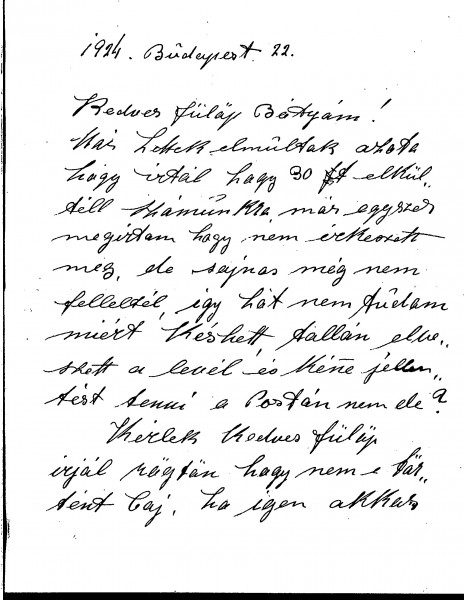 1924. Budapest 22.
Kedves Fülöp Bátyám!
Már hetek elmúltak azota
hogy írtál hogy 30 ft elkül„
téll számunkra, már egyszer
megirtam hogy nem érkezett
meg, de sajnos még nem
feleltél, így hát nem tudom
miért késhett tallán elve„
szett a levél, és kéne jellen„
tést tenni a Postán nem de?
Kérlek Kedves Fülöp
irjál rögtön hogy nem e tör„
tént baj, ha igen akkor